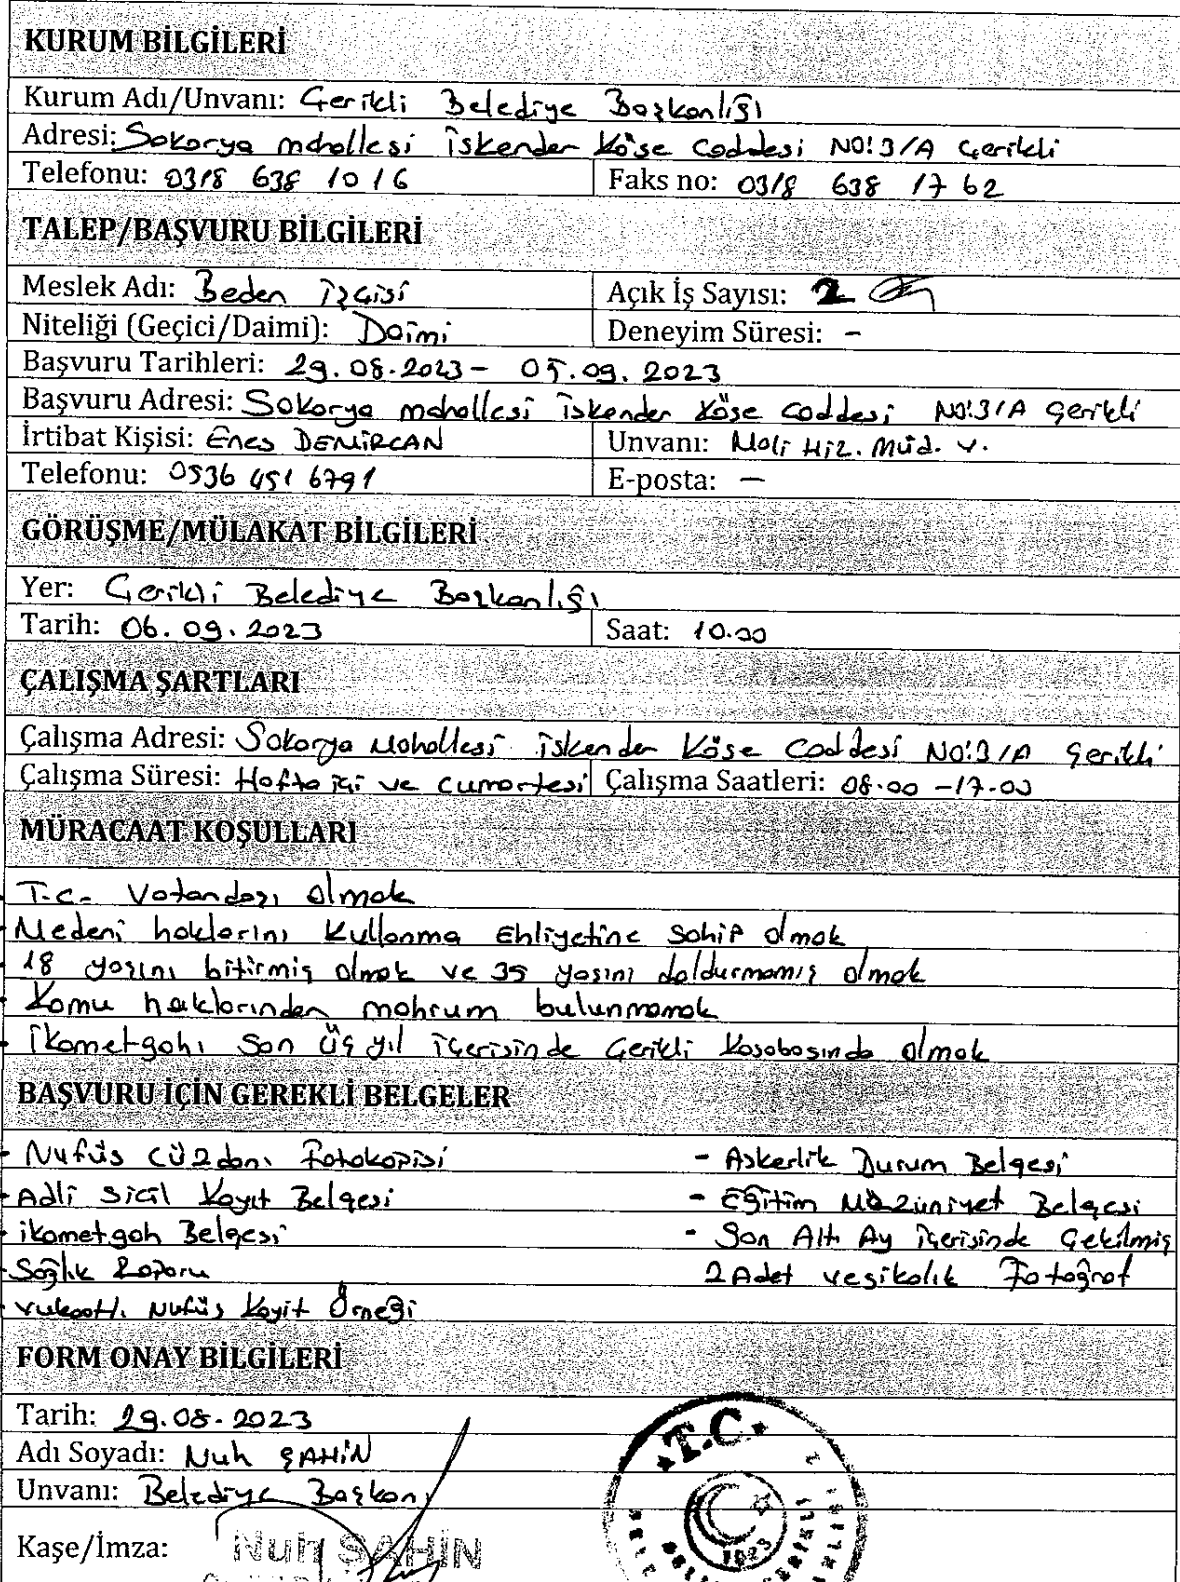 KURUM BİLGİLERİ
Kurum Adı/Unvanı: Çerikli Belediye Başkanlığı
Adresi: Sakarya mahallesi İskender Köse Caddesi NO:3/A Çerikli
Telefonu: 0318 638 10 16 Faks no: 0318 638 17 62
TALEP/BAŞVURU BİLGİLERİ
Meslek Adı: Beden İşçisi Açık İş Sayısı: 2
Niteliği (Geçici/Daimi): Daimi Deneyim Süresi: -
Başvuru Tarihleri: 29.08.2023 - 05.09.2023
Başvuru Adresi: Sakarya mahallesi İskender Köse Caddesi NO:3/A Çerikli
İrtibat Kişisi: Enes DEMİRCAN Unvanı: Mali Hiz. Müd. V.
Telefonu: 0536 451 6791 E-posta: -
GÖRÜŞME/MÜLAKAT BİLGİLERİ
Yer: Çerikli Belediye Başkanlığı
Tarih: 06.09.2023 Saat: 10.00
ÇALIŞMA ŞARTLARI
Çalışma Adresi: Sakarya Mahallesi İskender Köse Caddesi NO:3/A Çerikli
Çalışma Süresi: Hafta içi ve Cumartesi Çalışma Saatleri: 08.00 - 17.00
MÜRACAAT KOŞULLARI
T.C. Vatandaşı olmak
Medeni haklarını Kullanma Ehliyetine Sahip olmak
18 yaşını bitirmiş olmak ve 35 yaşını doldurmamış olmak
Kamu haklarından mahrum bulunmamak
İkametgahı Son üç yıl içerisinde Çerikli Kasabasında olmak
BAŞVURU İÇİN GEREKLİ BELGELER
- Nufüs Cüzdanı Fotokopisi - Askerlik Durum Belgesi
- Adli Sicil Kayıt Belgesi - Eğitim Mezuniyet Belgesi
- ikametgah Belgesi - Son Altı Ay içerisinde Çekilmiş
- Sağlık Raporu 2 Adet vesikalık Fotoğraf
- Vukuatlı Nufüs Kayıt Örneği
FORM ONAY BİLGİLERİ
Tarih: 29.08.2023
Adı Soyadı: Nuh ŞAHİN
Unvanı: Belediye Başkanı
Kaşe/İmza: Nuh ŞAHİN
T.C.
1923